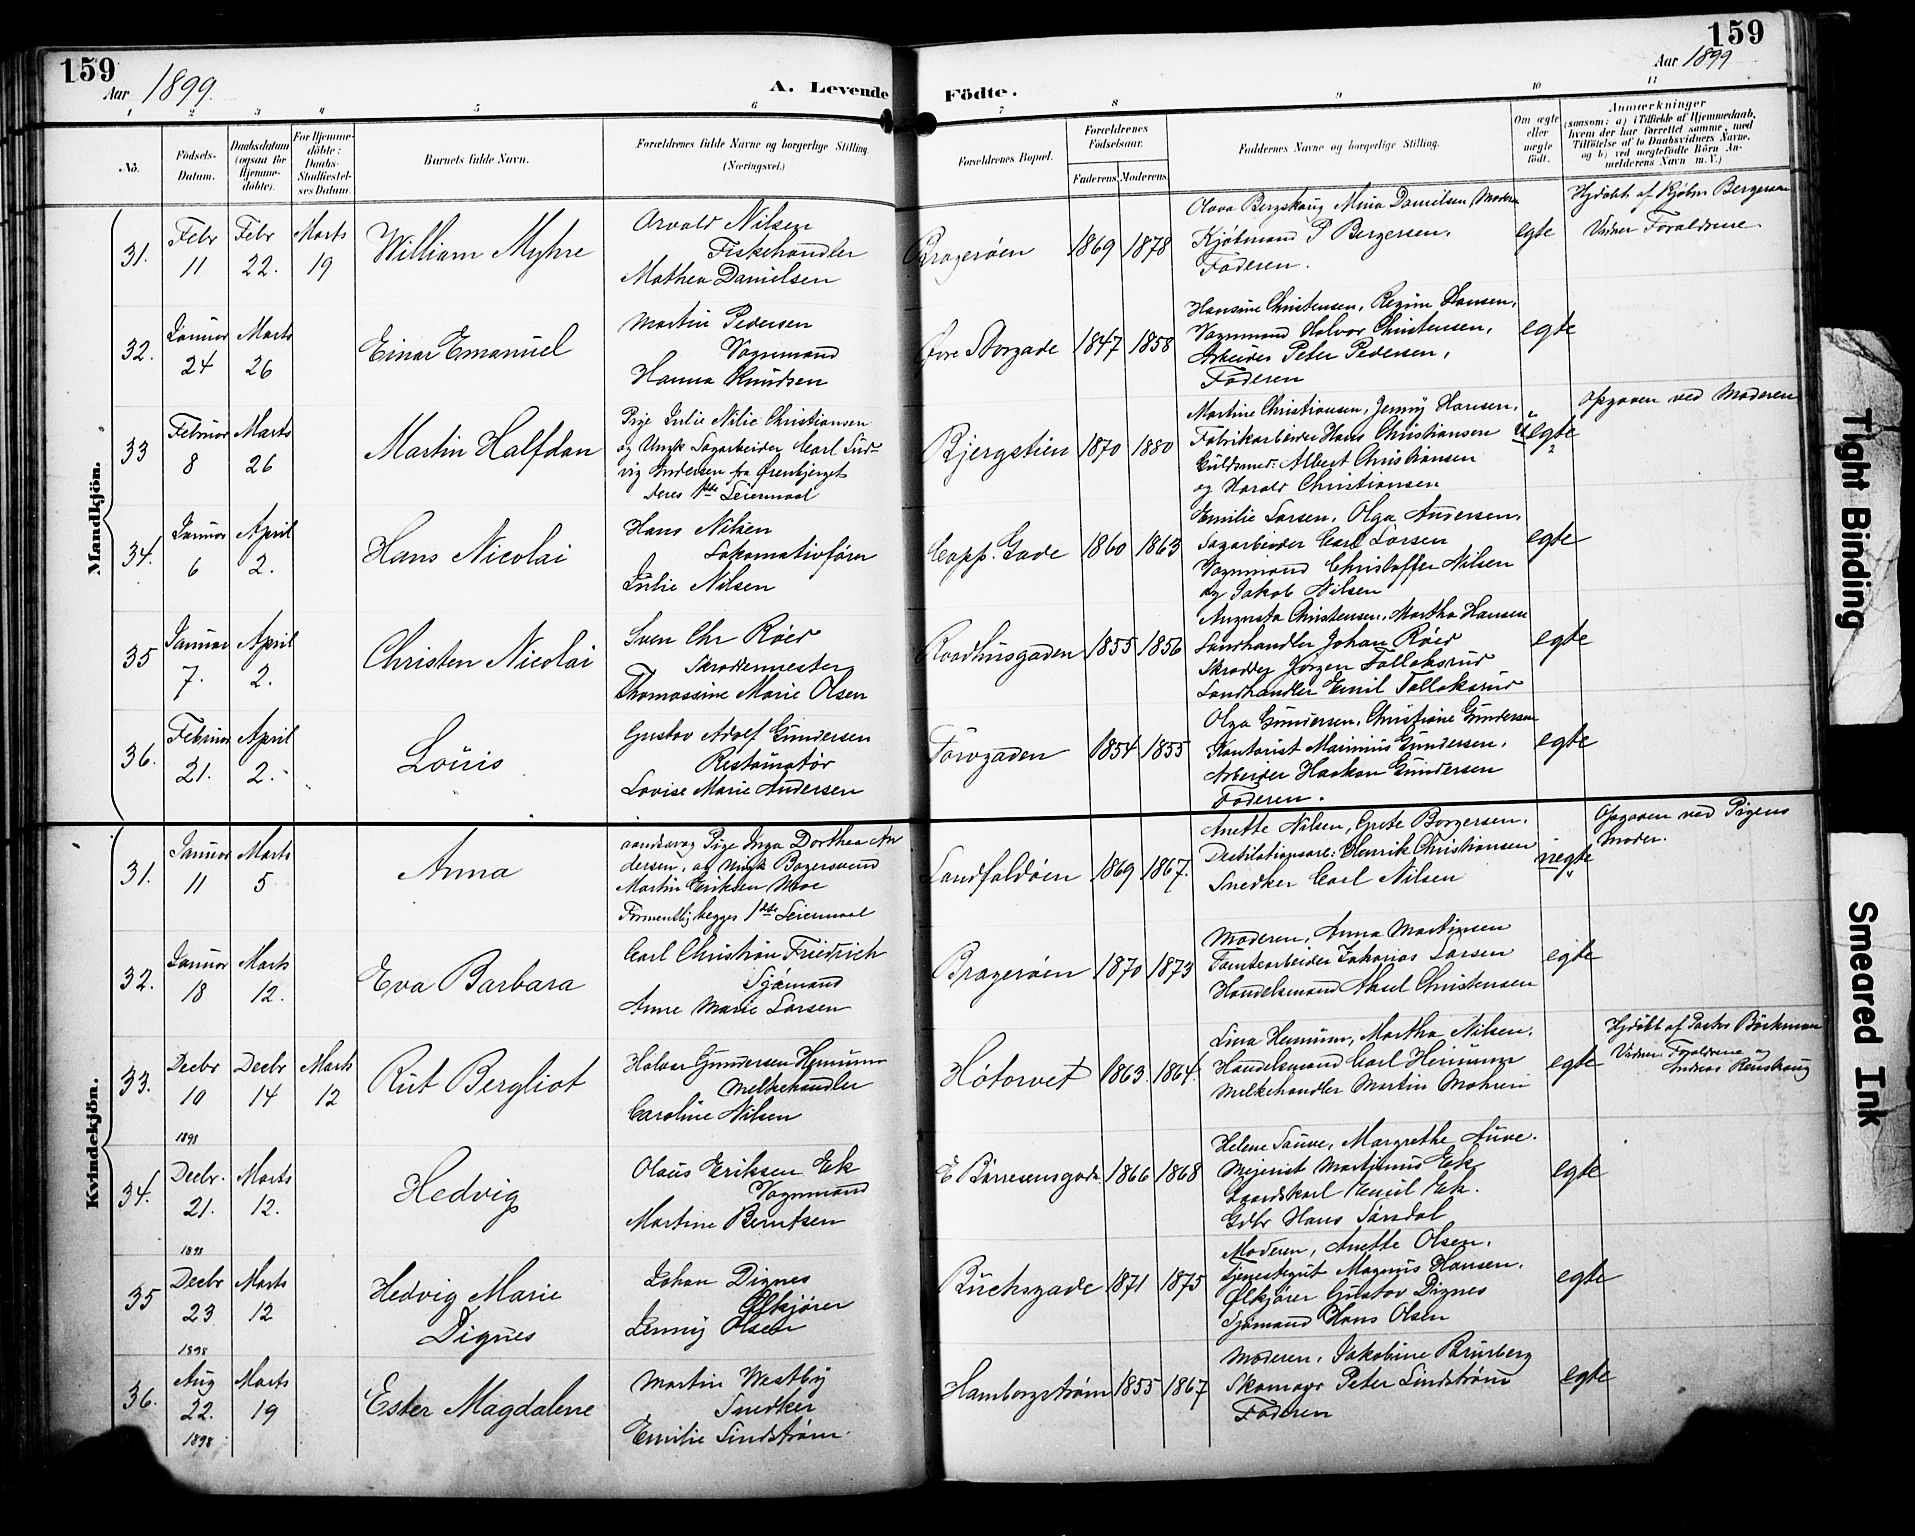 159
Aar 1899.
A. Levende
Födte.
159
Aar 1899
1 2 3 4 5 6 7 8 9 10 11
No.
Födsels-Datum.
Daabsdatum (ogsaa for Hjemme-döbte).
For Hjemme-döbte: Daabs-Stadfæstel-ses Datum.
Barnets fulde Navn.
Forældrenes fulde Navne og borgerlige Stilling (Næringsvei.)
Forældrenes Bopæl.
Forældrenes Födselsaar.
Faderens. Moderens.
Faddernes Navne og borgerlige Stilling.
Om ægte eller uægte födt.
Anmærkninger
(saasom: a) i Tilfælde af Hjemmedaab,
hvem der har forrettet samme, med
Tilföielse af to Daabsvidners Navne.
og b) ved uægtefödte Börn An-
melderens Navn m. V.)
Mandkjön.
31. Febr 11 Febr 22. Marts 19
William Myhre
Arvald Nilsen
Fiskehandler
Mathea Danielsen
Bragerøen 1869 1878
Olava Bergskaug Mina Danielsen Moderen
Kjøbmand P Bergersen.
Faderen.
egte
Hjdøbt af Kjøbm Bergersen
Vidner Forældrene.
32. Januar 24 Marts 26
Einar Emanuel
Martin Pedersen
Vognmand
Hanna Knudsen
Øvre Storgade 1847 1858
Hansine Christensen, Regine Hansen,
Vognmand Halvor Christensen,
Arbeider Peter Pedersen,
Faderen
egte
33 Februar 8 Marts 26
Martin Halfdan
Pige Julie Nilie Christiansen
og Ungk Sagarbeider Carl Lud-
vig Andersen fra Ørenbjerget
deres 1ste Leiermaal
Bjergstien 1870 1880
Martine Christiansen, Jenny Hansen,
Fabrikarbeider Hans Christiansen
Guldsmed: Albert Christiansen
og Harald Christiansen
uegte
Opgaven ved Moderen
34. Januar 6 April 2.
Hans Nicolai
Hans Nilsen
Lokomotivfører
Julie Nilsen
Capp. Gade 1860 1863
Emilie Larsen, Olga Andersen,
Sagarbeider Carl Larsen
Vognmand Christoffer Nilsen
og Jakob Nilsen
egte
35 Januar 7. April 2.
Christen Nicolai
Sven Chr Røed
Skræddermester
Thomassine Marie Olsen
Raadhusgaden 1855 1856
Augusta Christensen, Martha Hansen
Landhandler Johan Røed
Skrædder Jørgen Tollaksrud
Landhandler Emil Tollaksrud
egte
36. Februar 21. April 2.
Louis
Gustav Adolf Gundersen
Restauratør
Lovise Marie Andersen
Torvgaden 1854 1855
Olga Gundersen, Christiane Gundersen
Kontorist Marinius Gundersen,
Arbeider Haakon Gundersen
Faderen.
egte
Kvindekjön.
31. Januar 11 Marts 5
Anna
aandssvag Pige Inga Dorthea An
dersen, og Ungk Bagersvend
Martin Eriksen Moe
Formentlig begges 1ste Leiermaal
Landfaldøen 1869 1867.
Anette Nilsen, Grete Borgersen,
Destilationsarb: Henrik Christiansen
Snedker Carl Nilsen
uegte
Opgaven ved Pigens
Moder.
32. Januar 18 Marts 12.
Eva Barbara
Carl Christian Friedrich
Sjømand
Anne Marie Larsen
Bragerøen 1870 1873
Moderen, Anna Martinsen
Tomtearbeider Zakarias Larsen
Handelsmand Aksel Christensen
egte
33. Decbr 10 1898 Decbr 14 Marts 12
Rut Bergliot
Halvor Gundersen Hemum
Melkehandler
Caroline Nilsen
Høtorvet 1863. 1864.
Lina Hemum, Martha Nilsen,
Handelsmand Carl Hemum
Melkehandler Martin
egte
Hjdøbt af Pastor Bøckman
Vidner: Forældrene og
Andreas Renskaug
34. Decbr. 21. 1898 Marts 12.
Hedvig
Olaus Eriksen Ek
Vognmand
Martine Berntsen
E Børresensgade 1866 1868
Helene Sauve, Margrethe Auve.
Meierist Martinius Ek
Gaardskarl Emil Ek.
Gdbr Hans Sørsdal
egte
35 Decbr 23 1898 Marts 12
Hedvig Marie
Dignes
Johan Dignes
Ølkjører
Jenny Olsen
Buchsgade 1871 1875
Moderen, Anette Olsen,
Tjenestegut Magnus Hansen,
Ølkjører Gustav Dignes
Sjømand Hans Olsen
egte
36. Aug 22. 1898 Marts 19
Ester Magdalene
Martin Westby
Snedker
Emilie Lindstrøm.
Hamborgstrøm 1855 1867
Moderen, Jakobine Brunberg
Skomager Peter Lindstrøm
Faderen
egte
Tight Binding
Smeared Ink